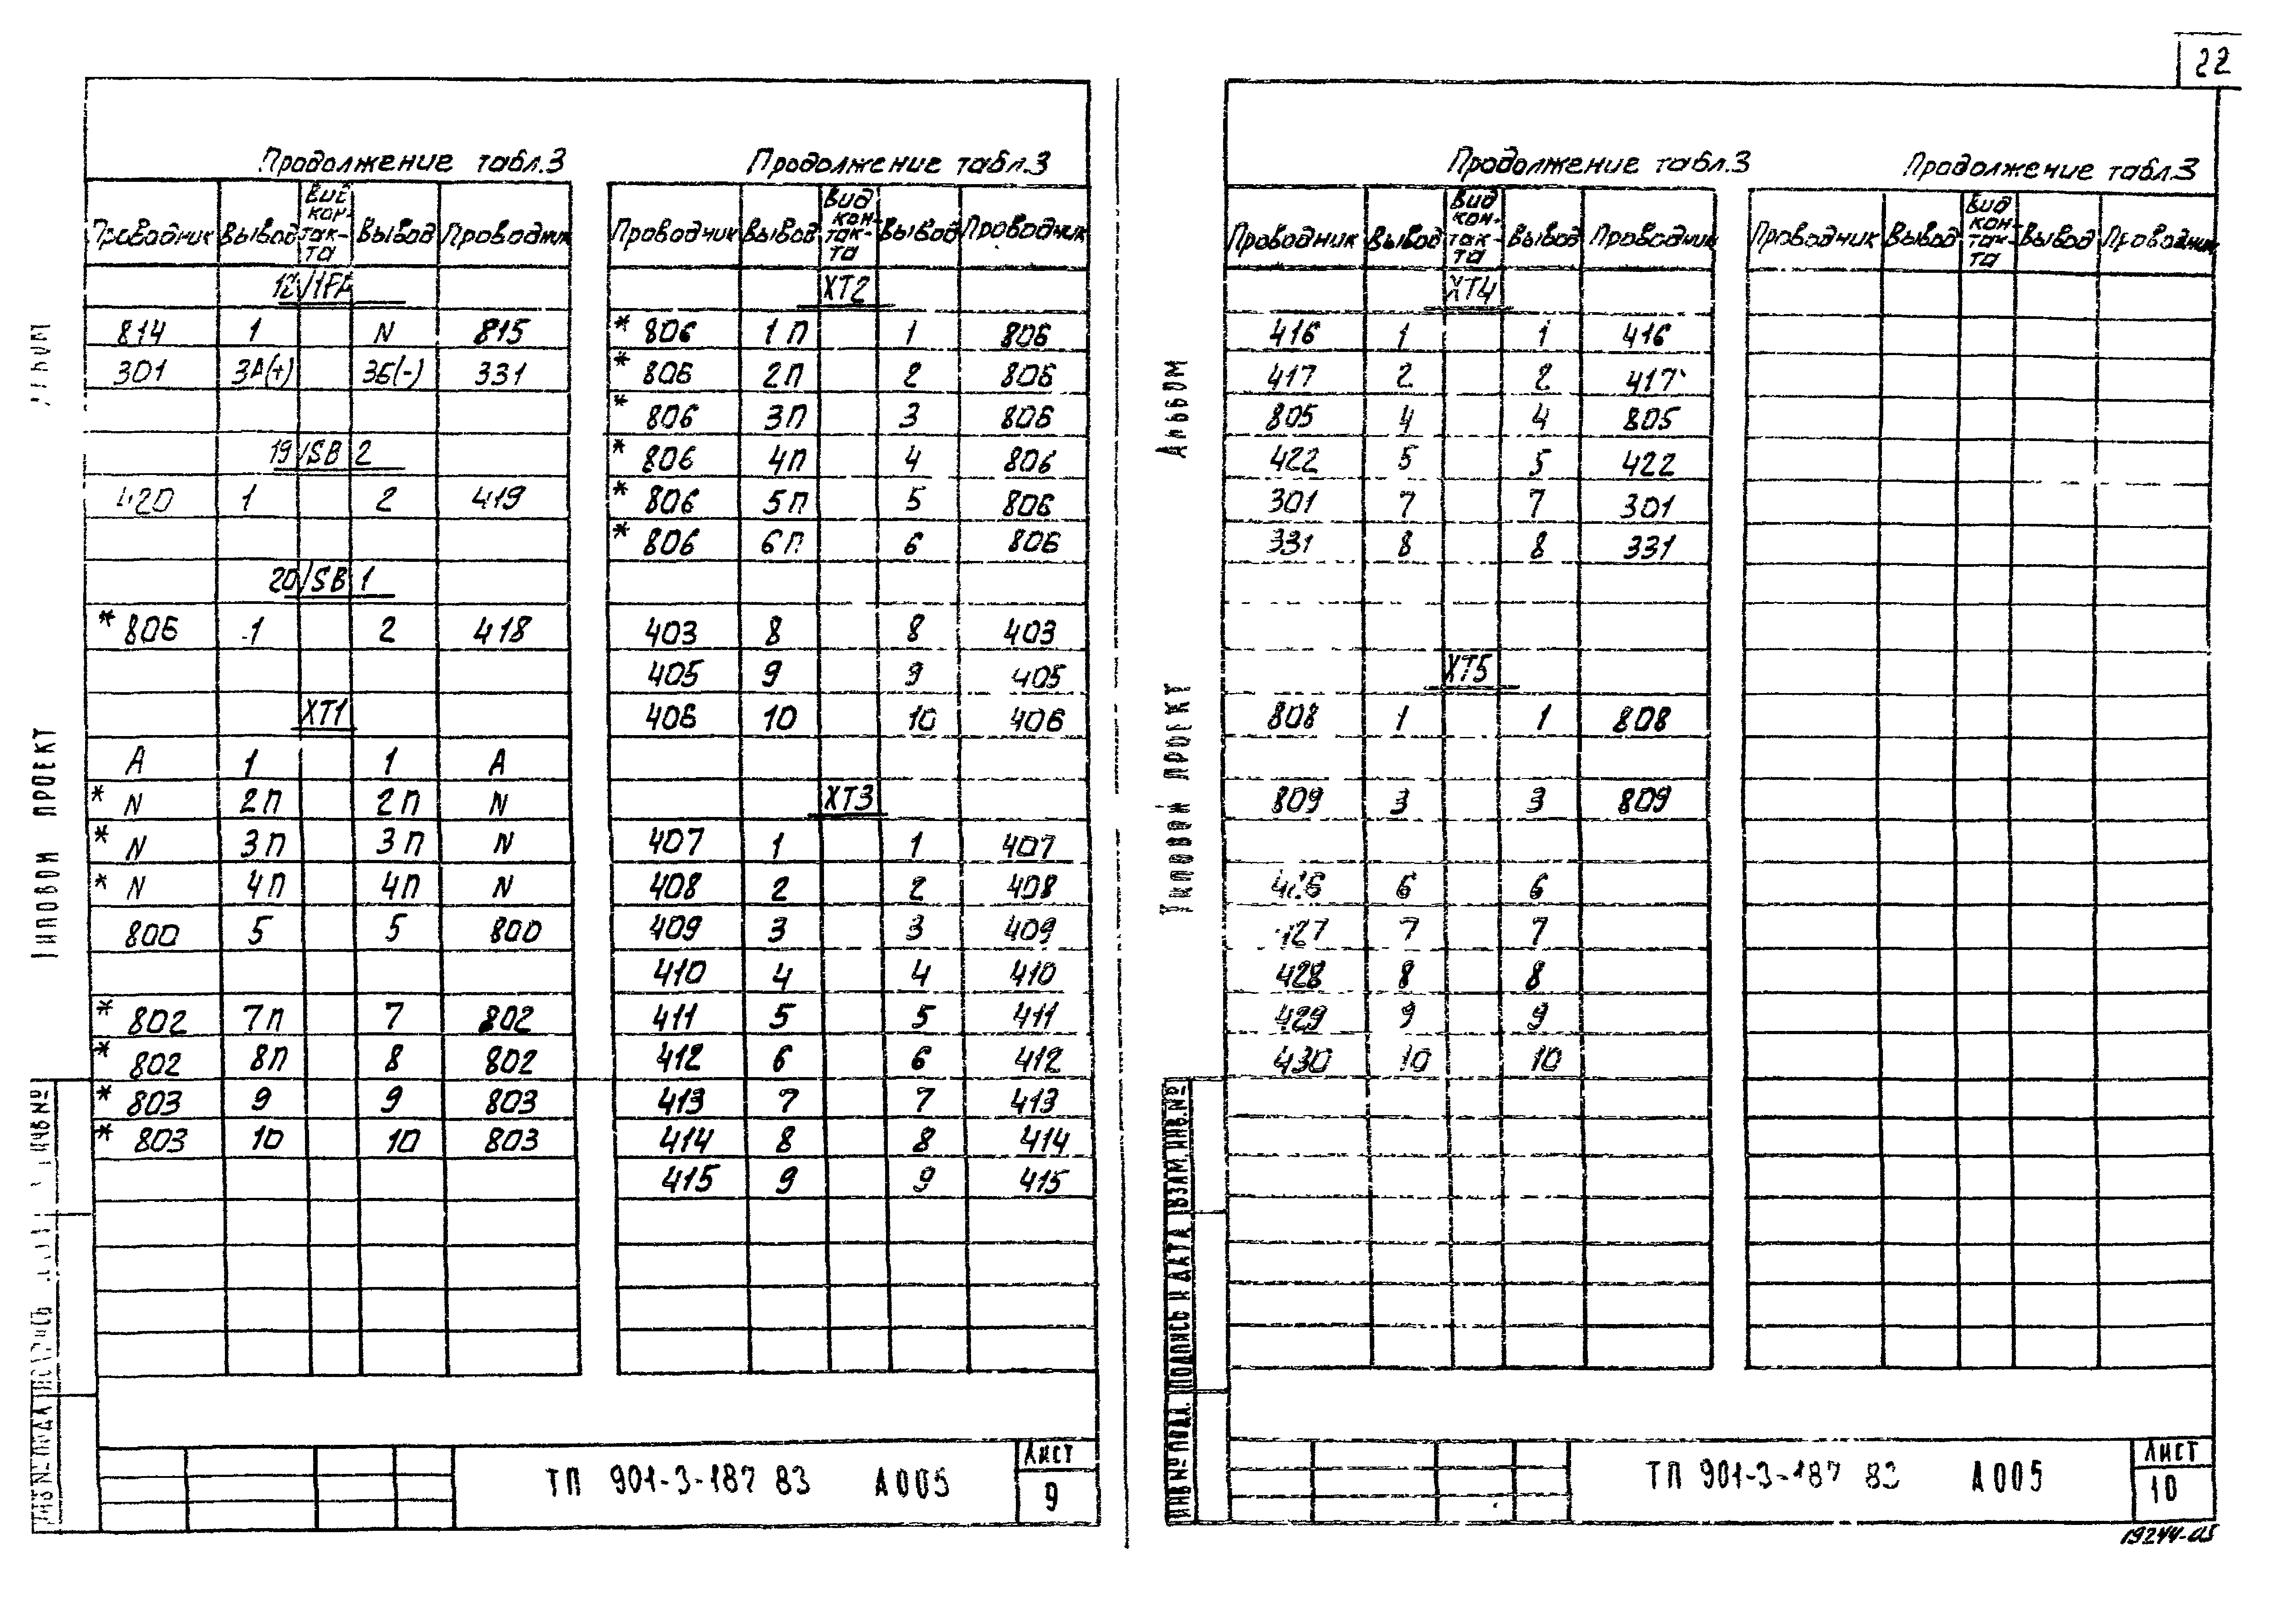 22
Продолжение табл.3
Проводник Вывод Вид контакта Вывод Проводник
12/1FA
814 1 N 815
301 3А(+) 3Б(-) 331
19/SB 2
420 1 2 419
20/SB 1
* 806 1 2 418
XT1
А 1 1 А
* N 2П 2П N
* N 3П 3П N
* N 4П 4П N
800 5 5 800
* 802 7П 7 802
* 802 8П 8 802
* 803 9 9 803
* 803 10 10 803
Продолжение табл.3
Проводник Вывод Вид кон-так-та Вывод Проводник
XT2
* 806 1П 1 806
* 806 2П 2 806
* 806 3П 3 806
* 806 4П 4 806
* 806 5П 5 806
* 806 6П 6 806
403 8 8 403
405 9 9 405
406 10 10 406
XT3
407 1 1 407
408 2 2 408
409 3 3 409
410 4 4 410
411 5 5 411
412 6 6 412
413 7 7 413
414 8 8 414
415 9 9 415
ТИПОВОЙ ПРОЕКТ
ТП 901-3-187 83 А005
Лист
9
Продолжение табл.3
Проводник Вывод Вид кон-так-та Вывод Проводник
XT4
416 1 1 416
417 2 2 417
805 4 4 805
422 5 5 422
301 7 7 301
331 8 8 331
XT5
808 1 1 808
809 3 3 809
426 6 6
427 7 7
428 8 8
429 9 9
430 10 10
Продолжение табл.3
Проводник Вывод Вид кон-так-та Вывод Проводник
Альбом
Типовой проект
ИНВ № ПОДЛ. ПОДПИСЬ И ДАТА ВЗАМ. ИНВ. №
ТП 901-3-187 83 А005
Лист
10
19244-05